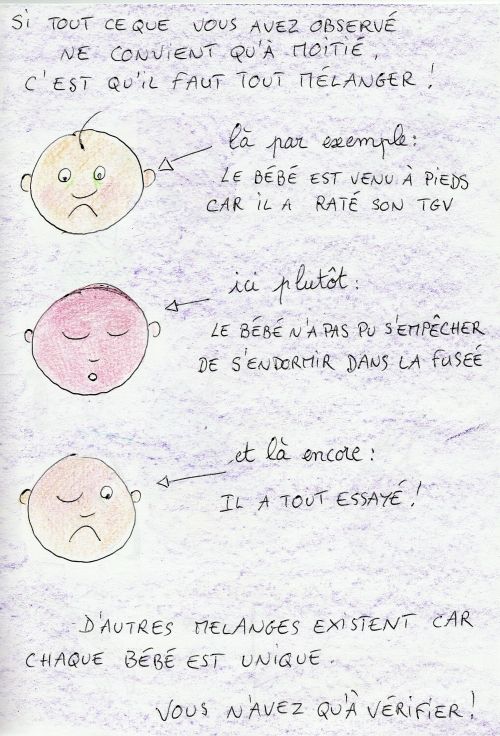 SI TOUT CE QUE VOUS AVEZ OBSERVÉ
NE CONVIENT QU'À MOITIÉ,
C'EST QU'IL FAUT TOUT MÉLANGER !
là par exemple :
LE BÉBÉ EST VENU À PIEDS
CAR IL A RATÉ SON TGV
ici plutôt :
LE BÉBÉ N'A PAS PU S'EMPÊCHER
DE S'ENDORMIR DANS LA FUSEÉ
et là encore :
IL A TOUT ESSAYÉ !
D'AUTRES MELANGES EXISTENT CAR
CHAQUE BÉBÉ EST UNIQUE.
VOUS N'AVEZ QU'À VÉRIFIER !